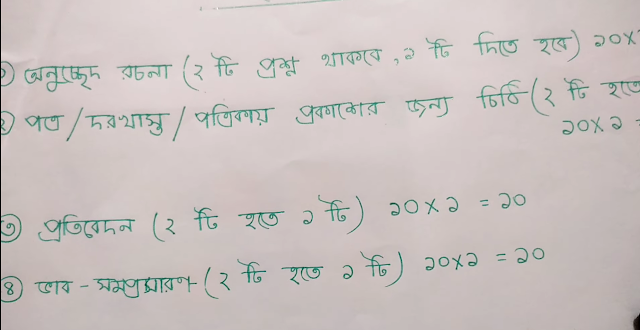 ১) অনুচ্ছেদ রচনা (২ টি প্রশ্ন থাকবে, ১ টি দিতে হবে) ১০×
২) পত্র / দরখাস্ত / পত্রিকায় প্রকাশের জন্য চিঠি (২ টি হতে
১০×১ =
৩) প্রতিবেদন (২ টি হতে ১ টি) ১০×১ = ১০
৪) ভাব - সম্প্রসারণ (২ টি হতে ১ টি) ১০×১ = ১০